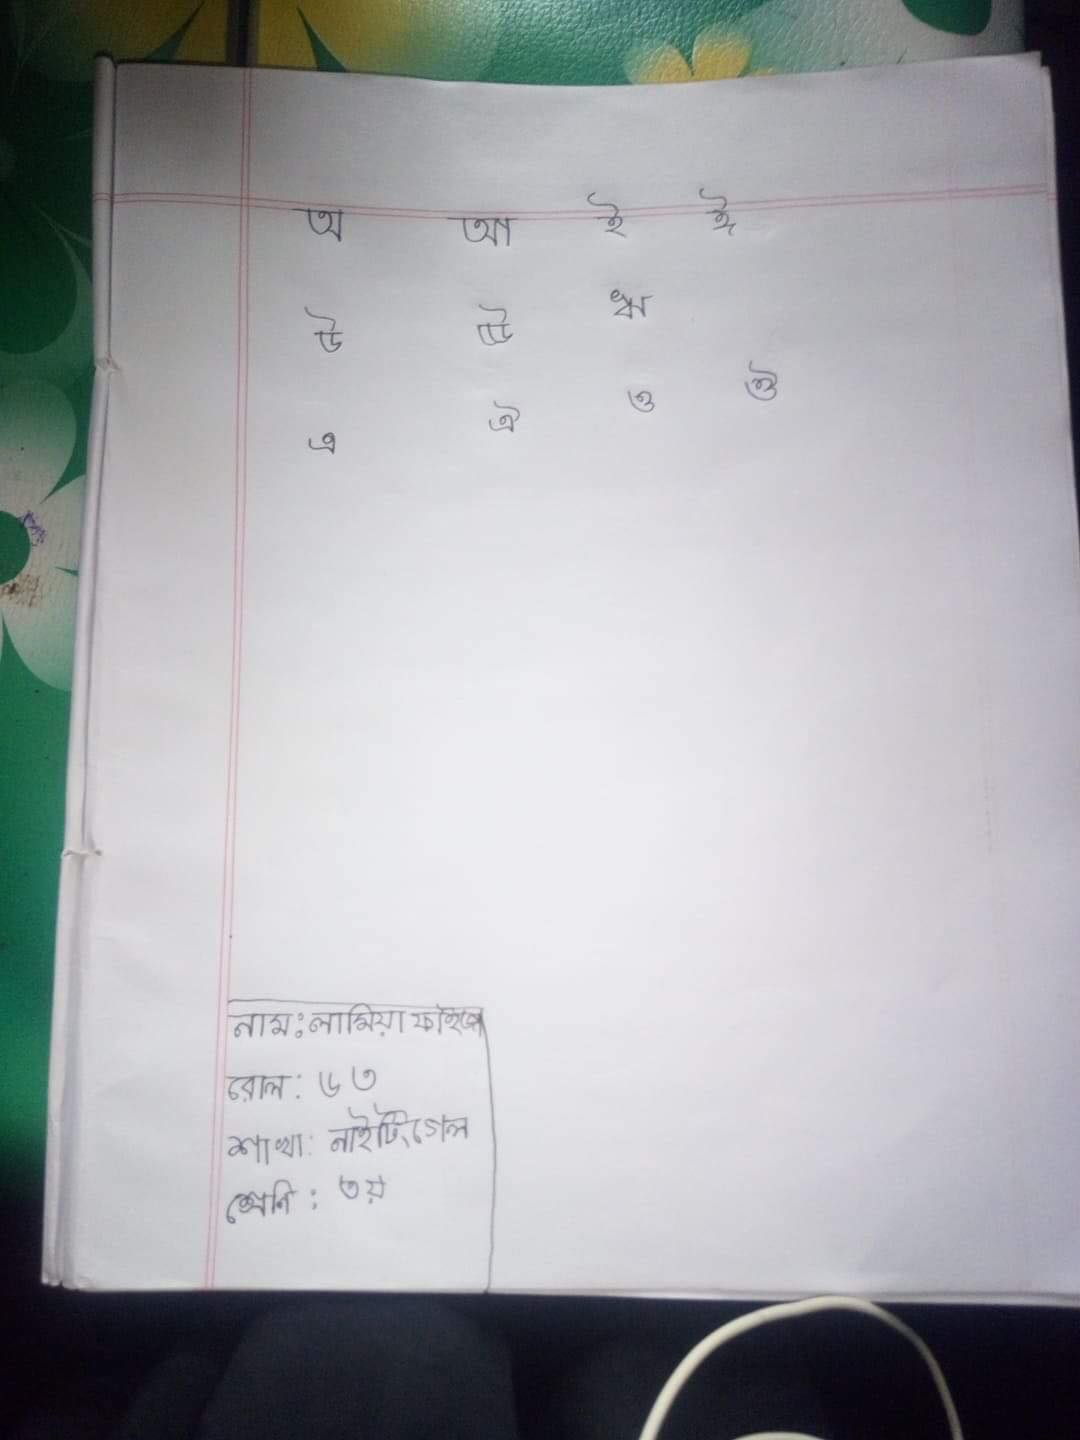 অ আ ই ঈ
উ ঊ ঋ
এ ঐ ও ঔ
নাম: লামিয়া
রোল: ৬৩
শাখা: নাইটিংগেল
শ্রেনি: ৩য়